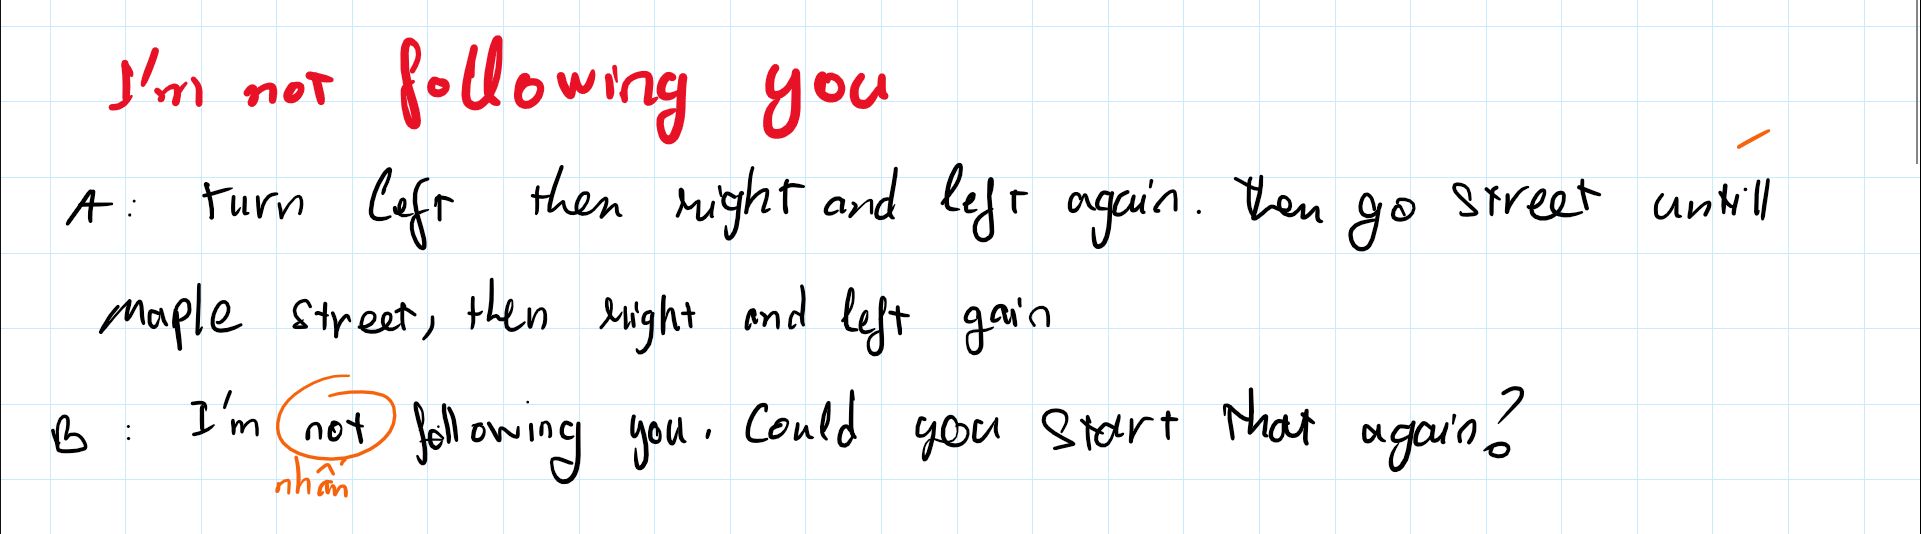 I'm not following you
A: turn left then right and left again. then go street untill
Maple street, then right and left gain
B: I'm not following you. Could you start that again?
nhấn